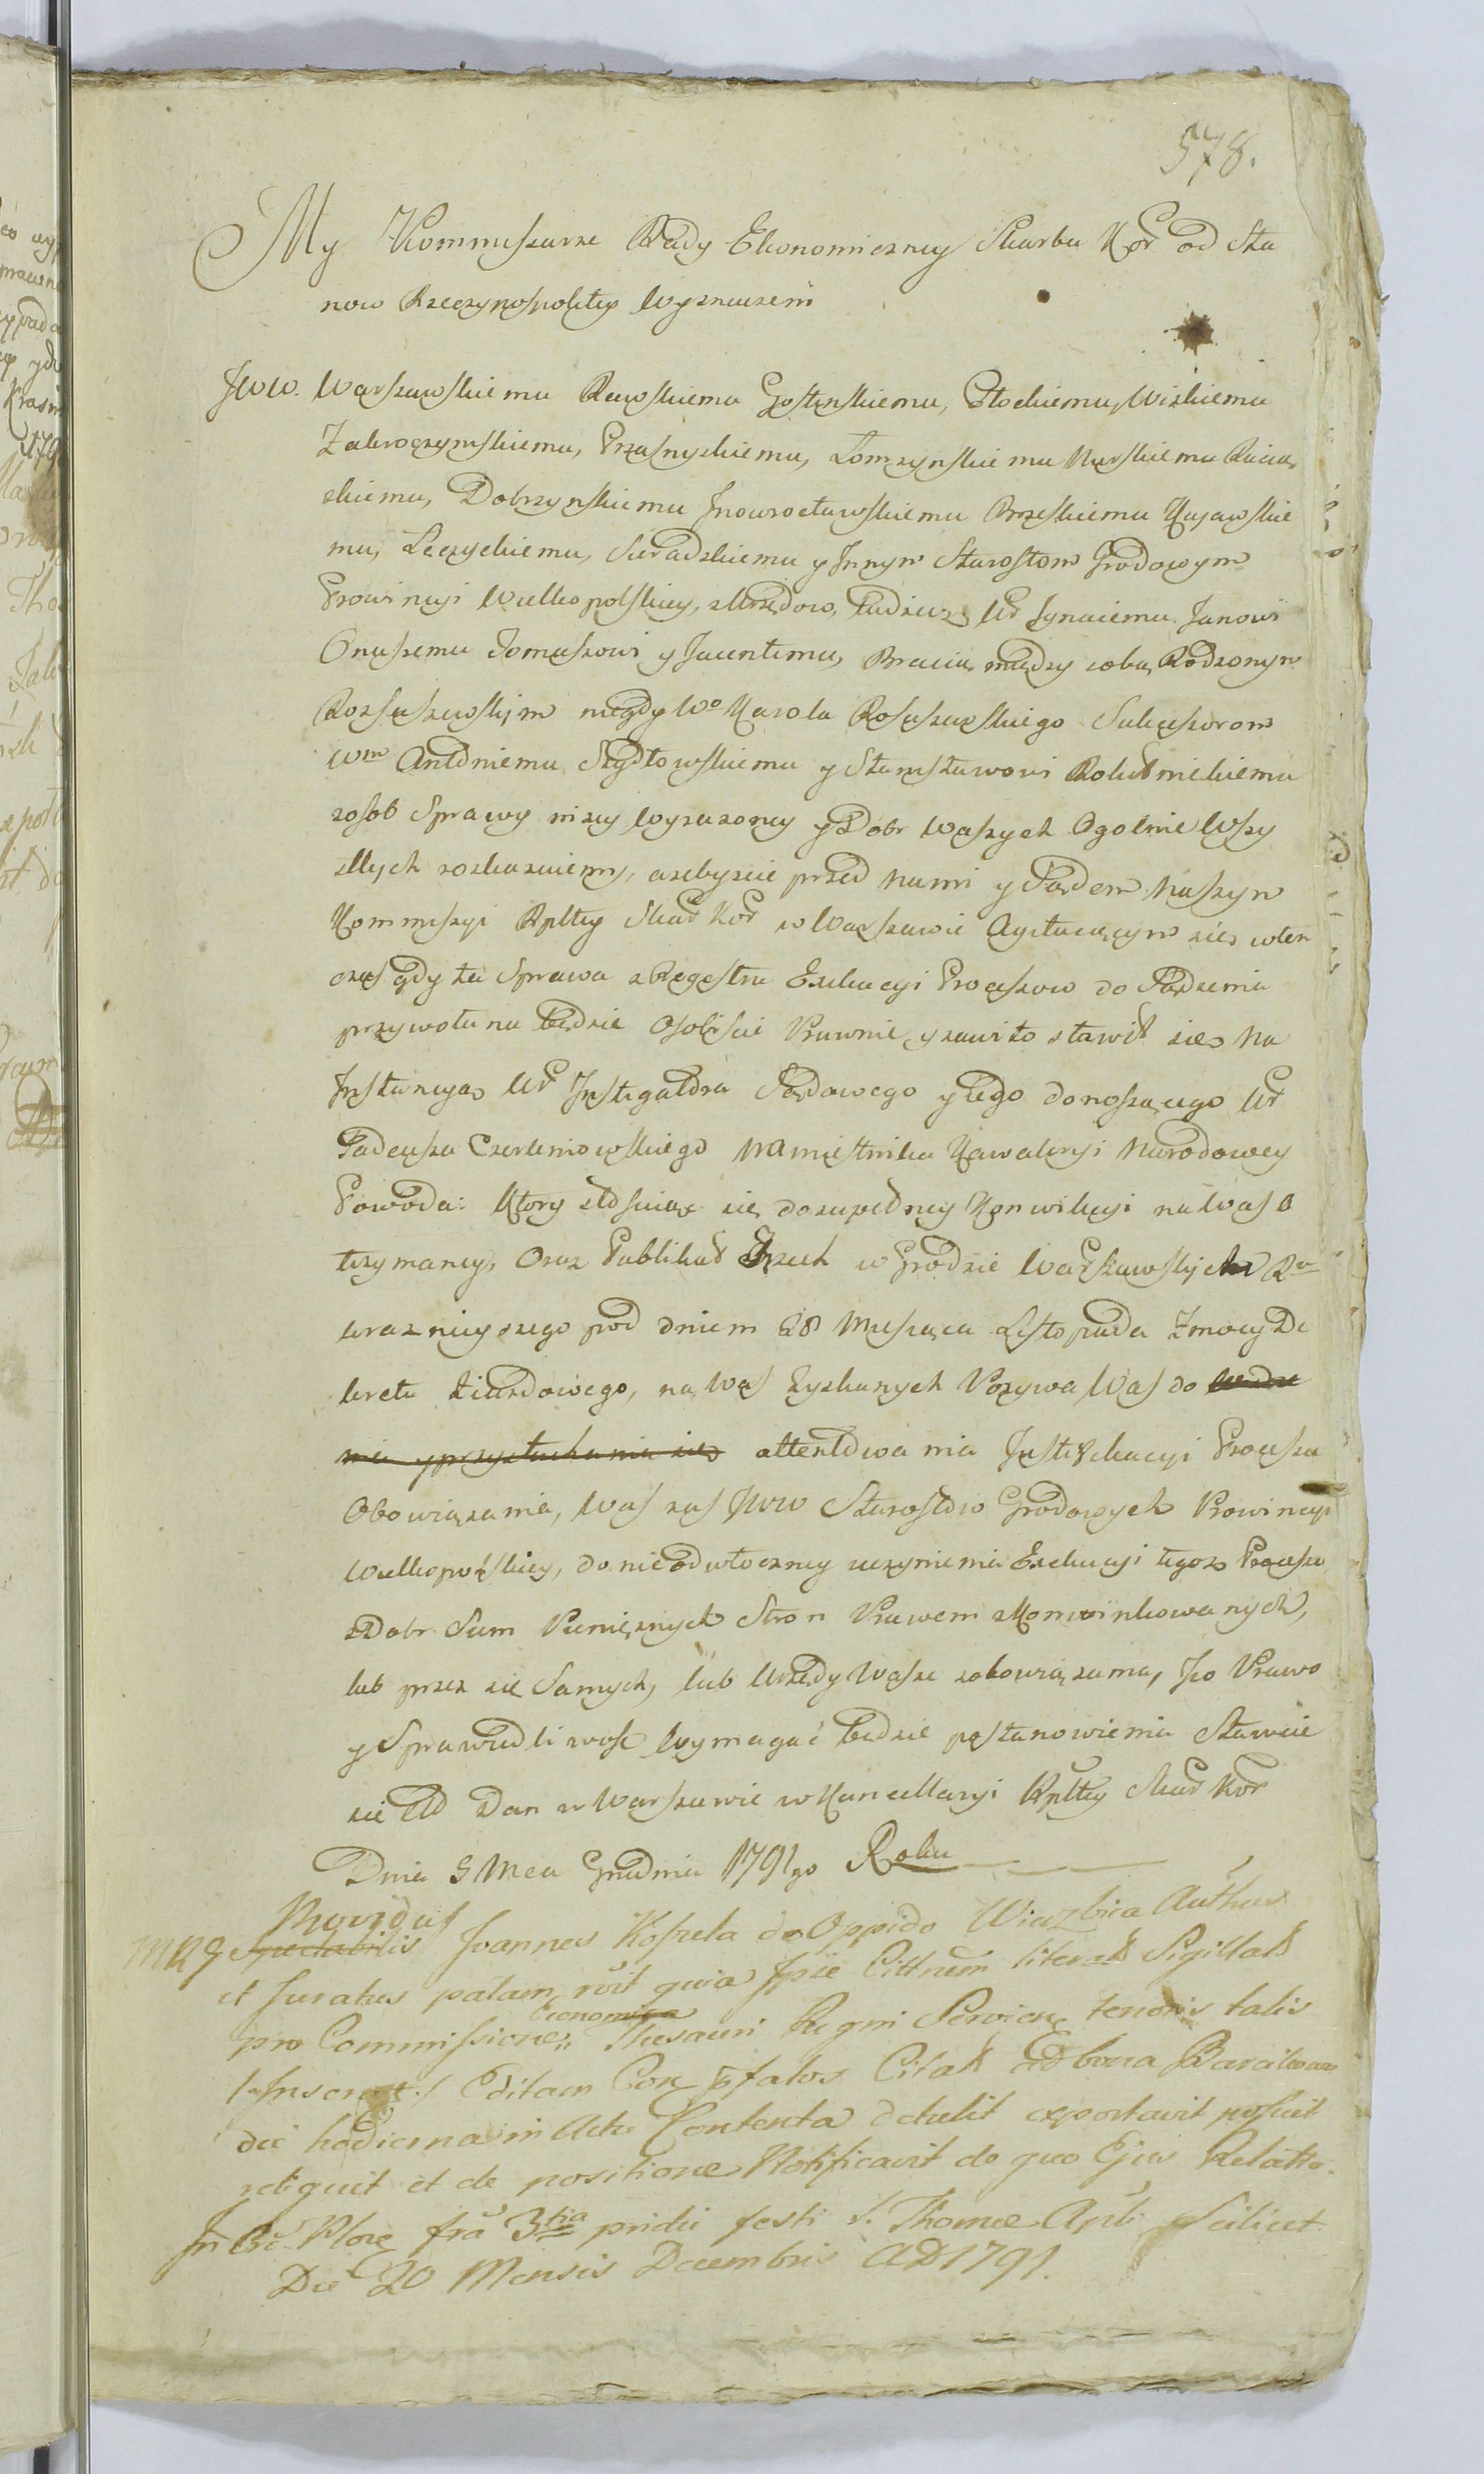 578.
My Kommissarze Rady Ekonomiczney Skarbu Kor od Sta
now Rzeczypospolitey Wyznaczeni
JWW. Warszawskiemu Rawskiemu Gostynskiemu, Płockiemu, Wizkiemu
Zakroczymskiemu, Przasnyskiemu, Łomzynskiemu Nurskiemu Raciąz
skiemu, Dobrzynskiemu Jnowrocławskiemu Brzeskiemu Kujawskie
mu, Łęczyckiemu, Sieradzkiemu y Jnnym Starostom Grodowym
Prowincyi Wielkopolskiey, z Urzędow, tudziesz Ur Jgnacemu Janowi
Onuszemu Tomaszowi y Jacentemu, Bracią między sobą Rodzonym
niegdy Wo Karola Sukcessorom
Wm Antoniemu Szydłowskiemu y Stanisławowi
z osob Sprawy nizey wyrazoney y Dobr Waszych Ogolnie Wszy
stkych rozkazuiemy, azebyscie przed Nami y Sądem Naszym
Kommissyi Rpltey Skar Kor w Warszawie Agituiącym się wten
czas gdy ta Sprawa z Regestru Exekucyi Processow do Sądzenia
przywołana będzie Osobiscie Prawnie y zawito stawili się Na
Jnstancyą Ur Jnstygatora Sądowego y Jego donoszącego Ur
Tadeusza Czerleniowskiego Namiestnika Kawaleryi Narodowey
Powoda: Ktory sciąg się do zupełney Konwikcyi na Was o
trzymaney, Oraz Publikat Trzech w Grodzie Warszawskych Ro
ku raznieyszego pod dniem 28 Miesiąca Listopada Zmocy De
kretu Ziazdowego, na Was Zyskanych Pozywa Was do
nia y przysłuchania się attentowania Justyfikacyi Processu
Obowiązania, Was zas JWW Starostow Grodowych Prowincyi
Wielkopolskiey, do nieodwłoczney uczynienia Exekucyi tegoz Processu
z Dobr Sum Pieniężnych Stron Prawem z Konwinkowanych,
lub przez się Samych, lub Urzędy Wasze zobowiązania, Jco Prawo
y Sprawiedliwosc wymagać będzie postanowienia Stawcie
się Dan w Warszawie w Kancellaryi Rpltey Skar Kor
Dnia 5 Mca Grudnia 1791go Roku
Providus
Joannes Kosrela de Oppido Wierzbica Authus
et Juratus palam rôit quia Jpse Cittnem literat Sigillat
Economica
pro Commissione Thesauri Regni Servien tenoris talis
/:Jnserat:/ Editam Con pfatos Citat ad bona
die hodierna in Actu Contenta detulit exportavit posuit
reliquit et de positione Notificavit de quo Ejus Relatio.
Jn fra 3tia pridie festi S. Thomæ Apli Scilicet
Die 20 Mensis Decembris AD 1791.